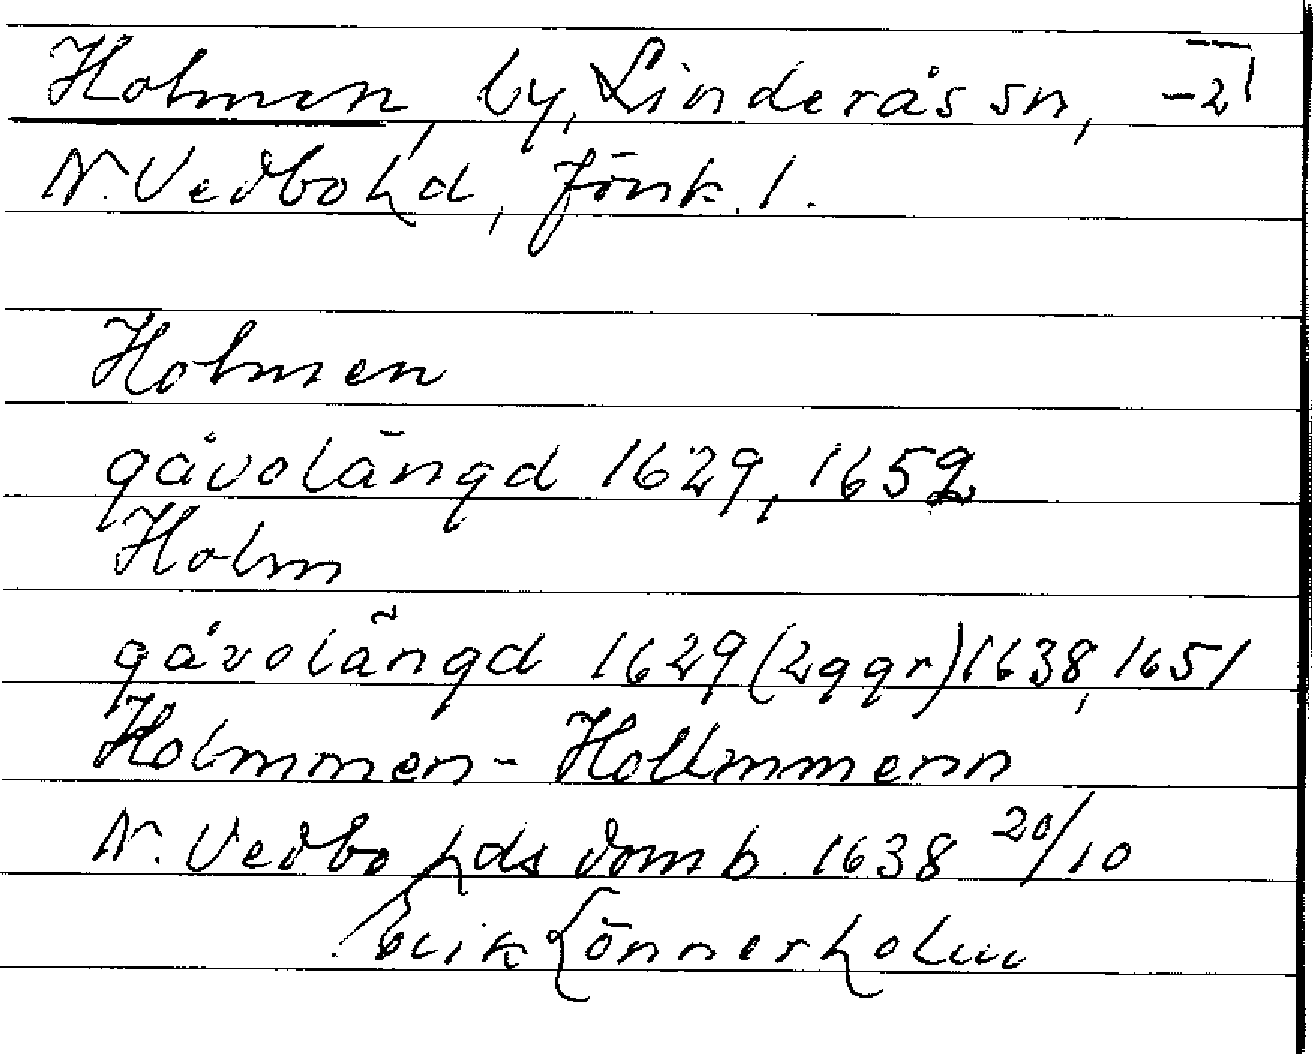 Holmen, by, Linderås sn, -21
N. Vedbo hd, Jönk. l.
Holmen
gåvolängd 1629, 1652
Holm
gåvolängd 1629 (2 ggr) 1638, 1651
Holmmen - Hollmmenn
N. Vedbo hds domb. 1638 20/10
Erik Lönnerholm